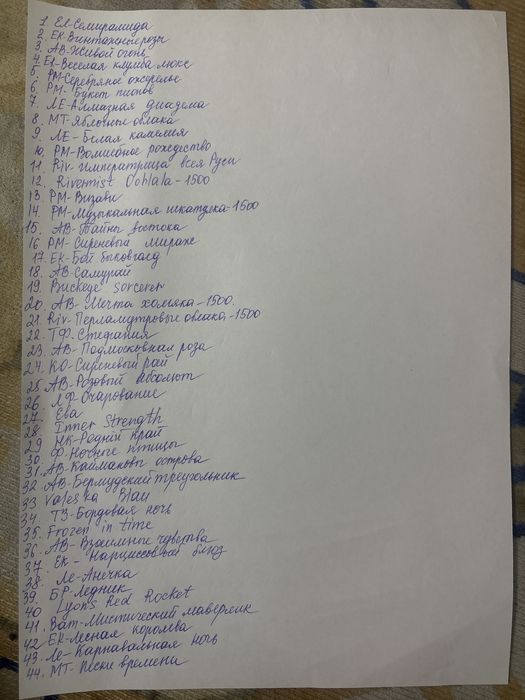 1. ЕЛ-Семирамида
2. ЕК-Винтажные розы
3. АВ-Живой огонь
4. ЕК-Веселая клумба люкс
5. РМ-Серебряное ожерелье
6. РМ-Букет пионов
7. ЛЕ-Алмазная диадема
8. МТ-Яблочные облака
9. ЛЕ-Белая камелия
10. РМ-Волшебное рождество
11. Riv-Императрица всея Руси
12. Rivermist Oohlala-1500
13. РМ-Визави
14. РМ-Музыкальная шкатулка-1500
15. АВ-Тайны востока
16 РМ-Сиреневый мираж
17. ЕК-Бой быков
18. АВ-Самурай
19. Buckeye Sorcerer
20. АВ-Мечта хомяка-1500.
21. Riv-Перламутровые облака-1500
22. ТФ-Стефания
23. АВ-Подмосковная роза
24. КО-Сиреневый рай
25. АВ-Розовый абсолют
26 ЛФ-Очарование
27. Ева
28. Inner Strength
29 НК-Родній край
30 Ф-Ночные птицы
31. АВ-Каймановы острова
32 АВ-Бермудский треугольник
33 Valeska Blau
34 ТЗ-Бордовая ночь
35. Frozen in time
36. АВ-Взаимные чувства
37. ЕК-Нарциссовый блюз
38. Ле-Анечка
39. БР-Ледник
40 Lyon's Red Rocket
41. Ват-Мистический маверик
42 ЕК-Лесная королева
43. Ле-Карнавальная ночь
44. МТ-Пески времени